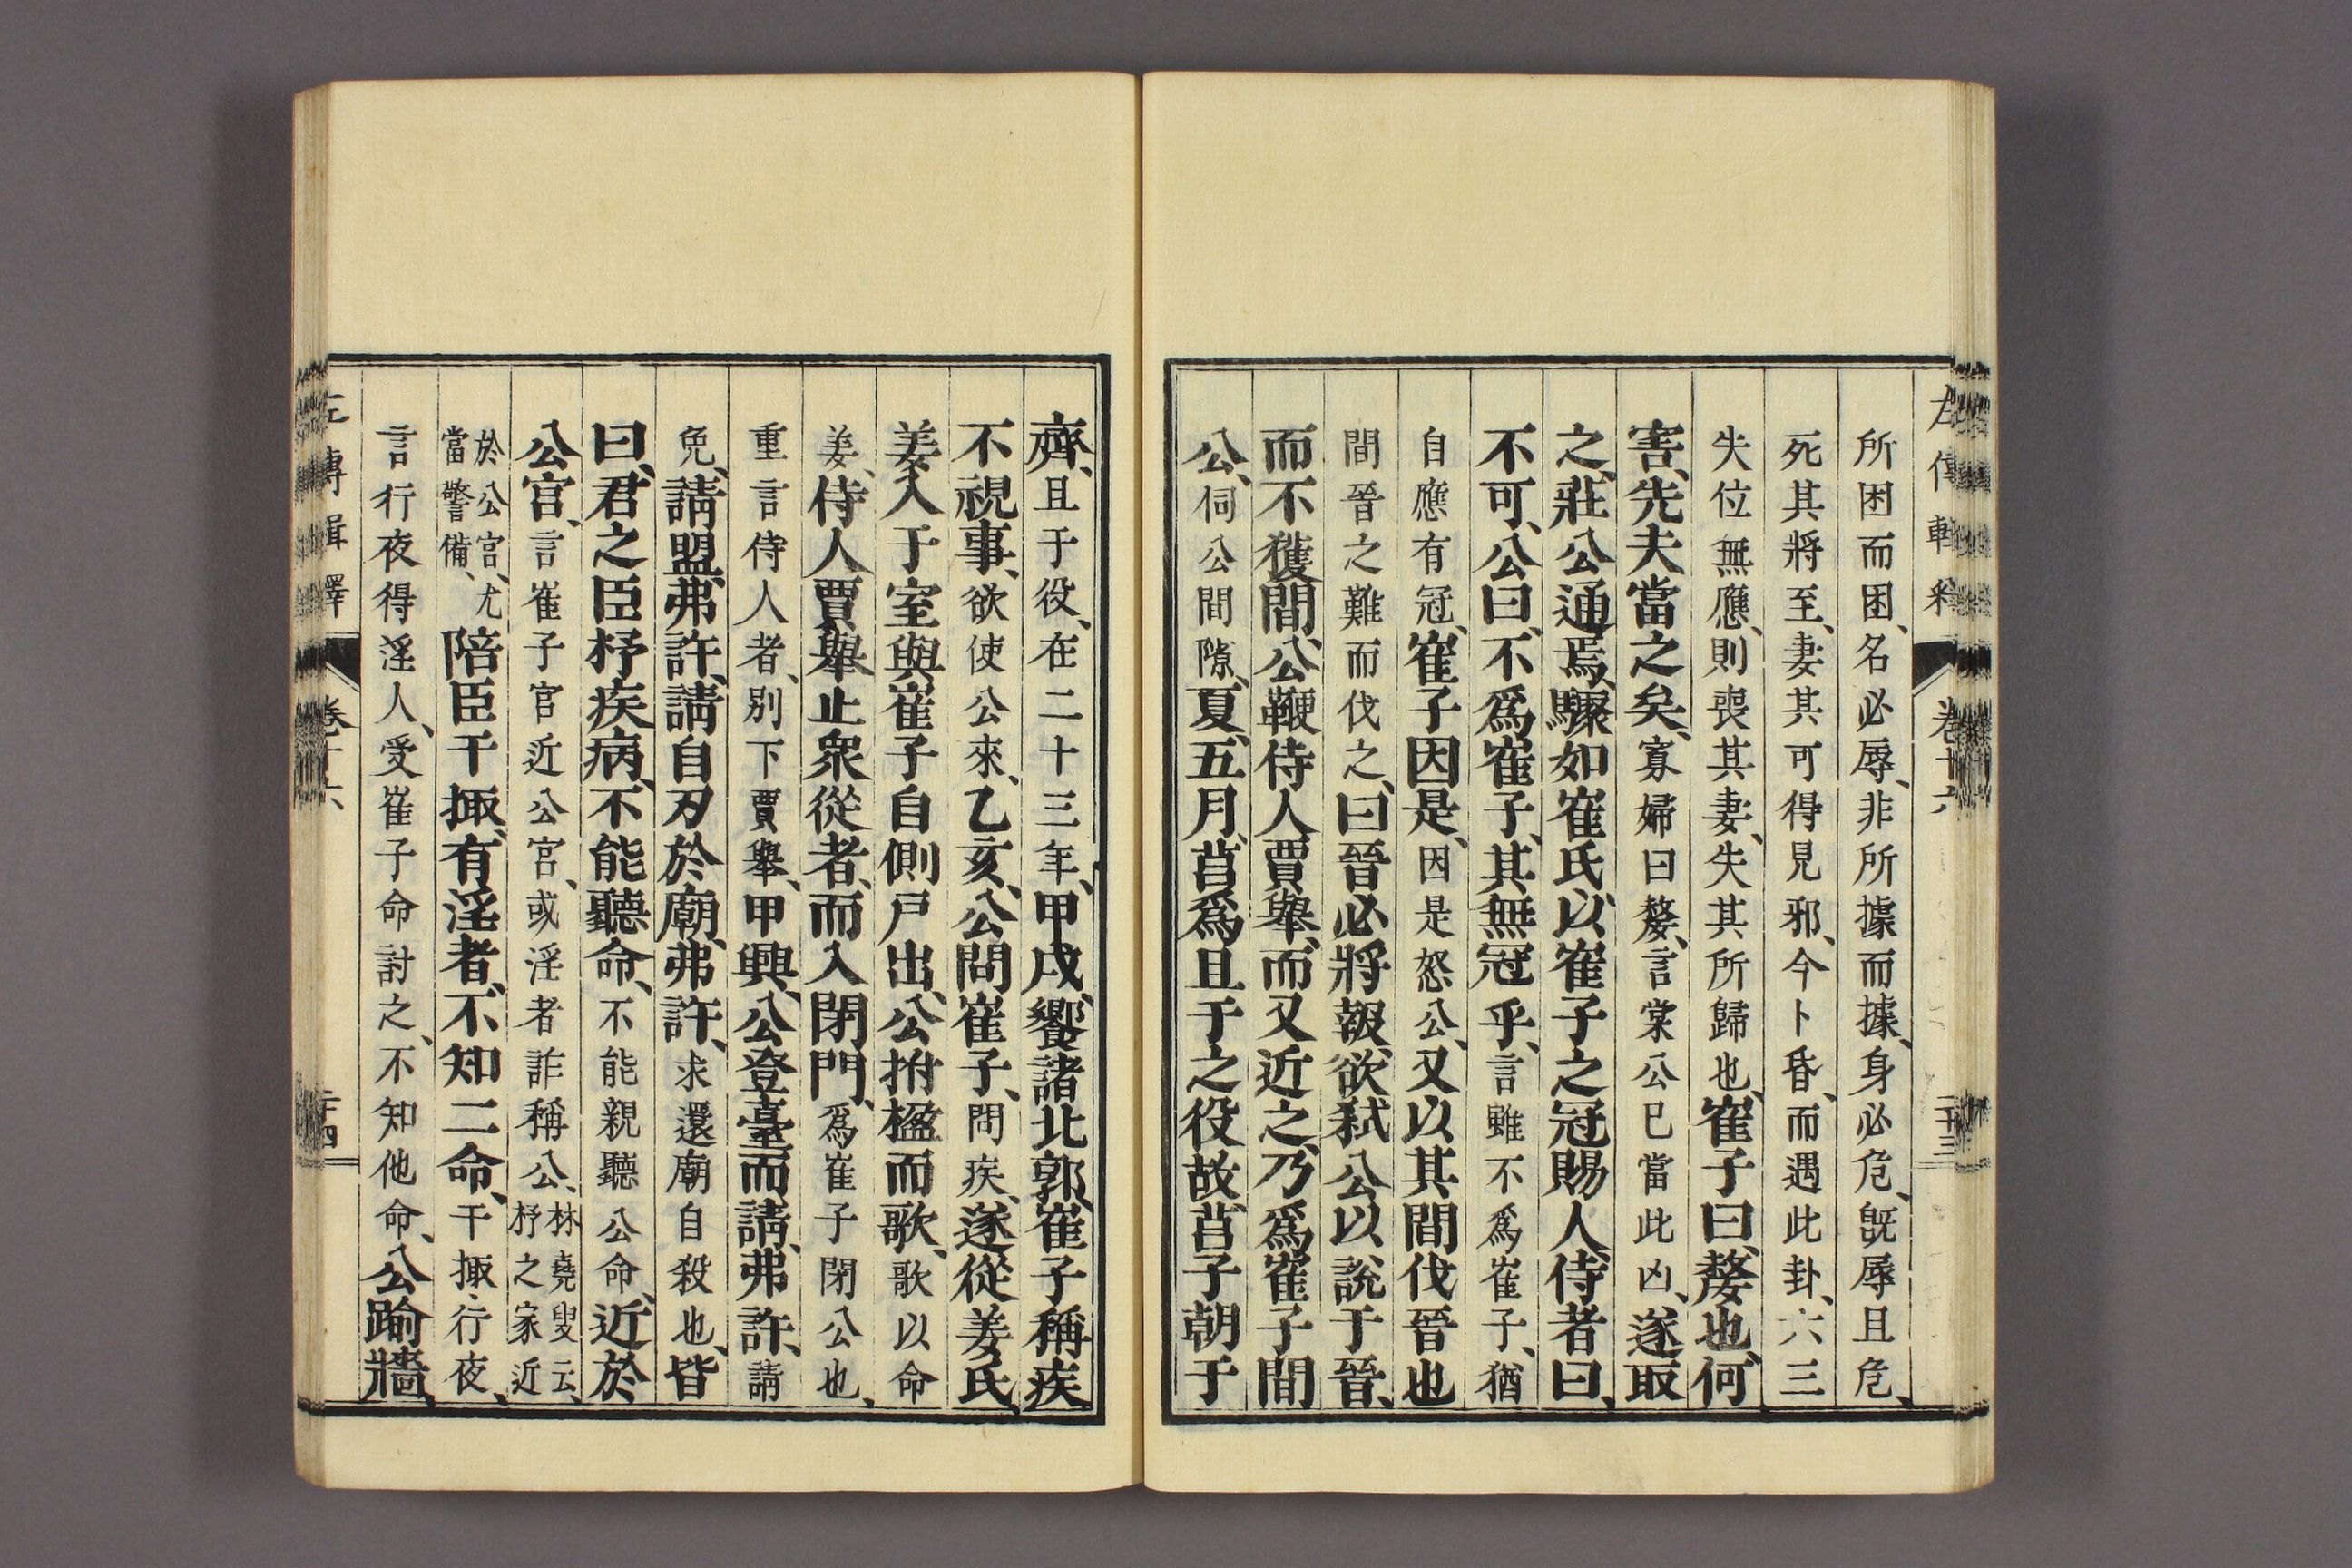 所困而困、名必辱、非所據而據、身必危、既辱且危、
死其將至、妻其可得見邪、今卜昏、而遇此卦、六三
失位無應、則喪其妻、失其所歸也、崔子曰、嫠也、何
害、先夫當之矣、寡婦曰嫠、言棠公已當此凶、遂取
之、莊公通焉、驟如崔氏、以崔子之冠賜人、侍者曰、
不可、公曰、不爲崔子、其無冠乎、言雖不爲崔子、猶
自應有冠、崔子因是、因是怒公、又以其間伐晉也
間晉之難而伐之、曰晉必將報、欲弑公以說于晉、
而不獲間、公鞭侍人賈舉、而又近之、乃爲崔子間
公、伺公間隙、夏、五月、莒爲且于之役故、莒子朝于
齊、且于役、在二十三年、甲戌、饗諸北郭、崔子稱疾
不視事、欲使公來、乙亥、公問崔子、問疾、遂從姜氏、
姜入于室與崔子自側戶出、公拊楹而歌、歌以命
姜、侍人賈舉止衆從者、而入閉門、爲崔子閉公也、
重言侍人者、別下賈舉、甲興、公登臺而請、弗許、請
免、請盟、弗許、請自刃於廟、弗許、求還廟自殺也、皆
曰、君之臣杼疾病、不能聽命、不能親聽公命、近於
公宮、言崔子宮近公宮、或淫者詐稱公、林堯叟云、杼之家近
於公宮、尤當警備、陪臣干掫、有淫者、不知二命、干掫、行夜、
言行夜得淫人、受崔子命討之、不知他命、公踰牆、
左傳輯釋 卷十六 二十四
卷十六 二十三